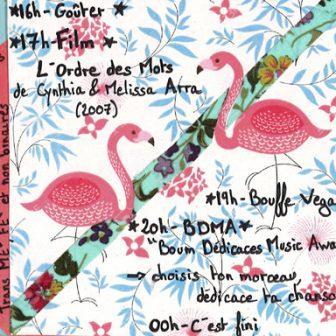 *16h- Goûter *
*17h-Film *
L'Ordre des Mots
de Cynthia & Melissa Arra
(2007)
*19h- Bouffe Vega
*20h- BDMA*
"Boum Dédicaces Music Awa
→ choisis ton morceau,
dédicace ta chanso
00h- C'est fini
Trans et non binaires